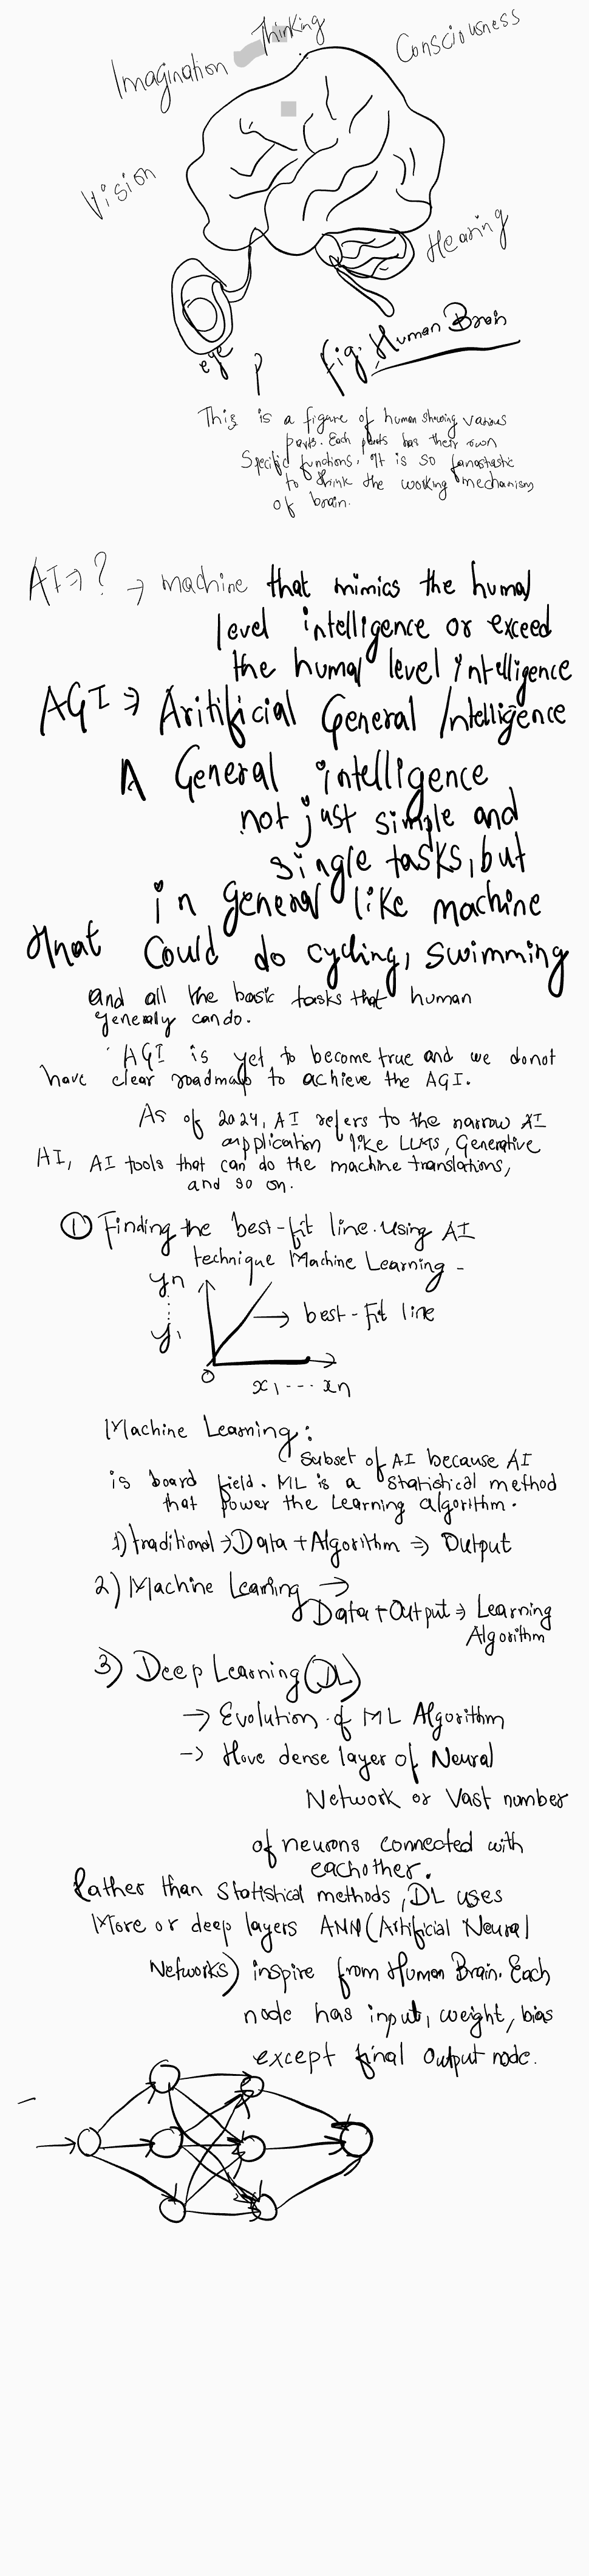 Thinking
Consciousness
Imagination
Vision
Hearing
eye
fig: Human Brain
This is a figure of human showing various
parts. Each parts has their own
Specific functions. It is so fanastastic
to think the working mechanism
of brain.
AI ⇒ ? → machine that mimics the human
level intelligence or exceed
the human level intelligence
AGI ⇒ Aritificial General Intelligence
A General intelligence
not just simple and
single tasks, but
in general like machine
that could do cycling, swimming
and all the basic tasks that human
generally can do.
AGI is yet to become true and we donot
have clear roadmap to achieve the AGI.
As of 2024, AI refers to the narrow AI
application like LLMs, Generative
AI, AI tools that can do the machine translations,
and so on.
① Finding the best-fit line. Using AI
technique Machine Learning -
yn
y1
→ best-fit line
0
x1 ---- xn
Machine Learning:
Subset of AI because AI
is board field. ML is a Statistical method
that power the Learning algorithm.
1) traditional → Data + Algorithm ⇒ Output
2) Machine Learning →
Data + Output ⇒ Learning
Algorithm
3) Deep Learning (DL)
→ Evolution of ML Algorithm
→ Have dense layer of Neural
Network or Vast number
of neurons connected with
eachother.
Rather than Statistical methods, DL uses
More or deep layers ANN (Artificial Neural
Networks) inspire from Human Brain. Each
node has input, weight, bias
except final output node.